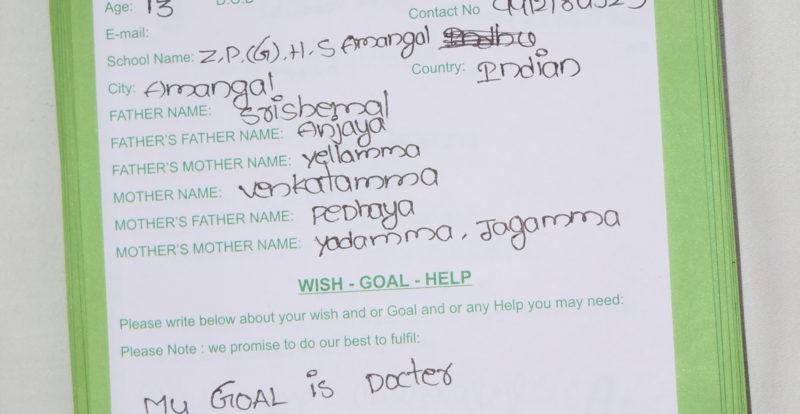 Age: 13
Contact No
E-mail:
School Name: Z.P.(G).H.S Amangal
City: Amangal Country: Indian
FATHER NAME: Srishemal
FATHER'S FATHER NAME: Anjaya
FATHER'S MOTHER NAME: yellamma
MOTHER NAME: venkatamma
MOTHER'S FATHER NAME: PEDhaya
MOTHER'S MOTHER NAME: yadamma, Jagamma
WISH - GOAL - HELP
Please write below about your wish and or Goal and or any Help you may need:
Please Note : we promise to do our best to fulfil:
My GOAL is Docter